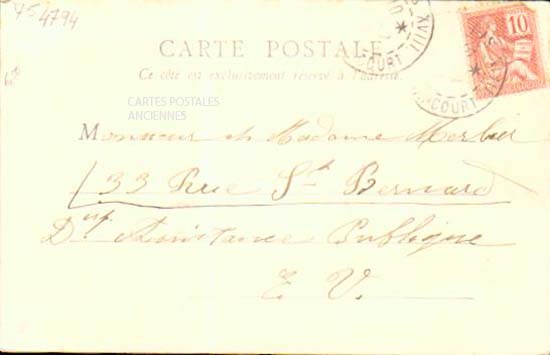 75 4794
10
XVIII
COURT
COURT
CARTE POSTALE
Ce côté est exclusivement réservé à l'adresse.
CARTES POSTALES
ANCIENNES
Monsieur et Madame Morbier
33 Rue St Bernard
Assistance Publique
E. V.